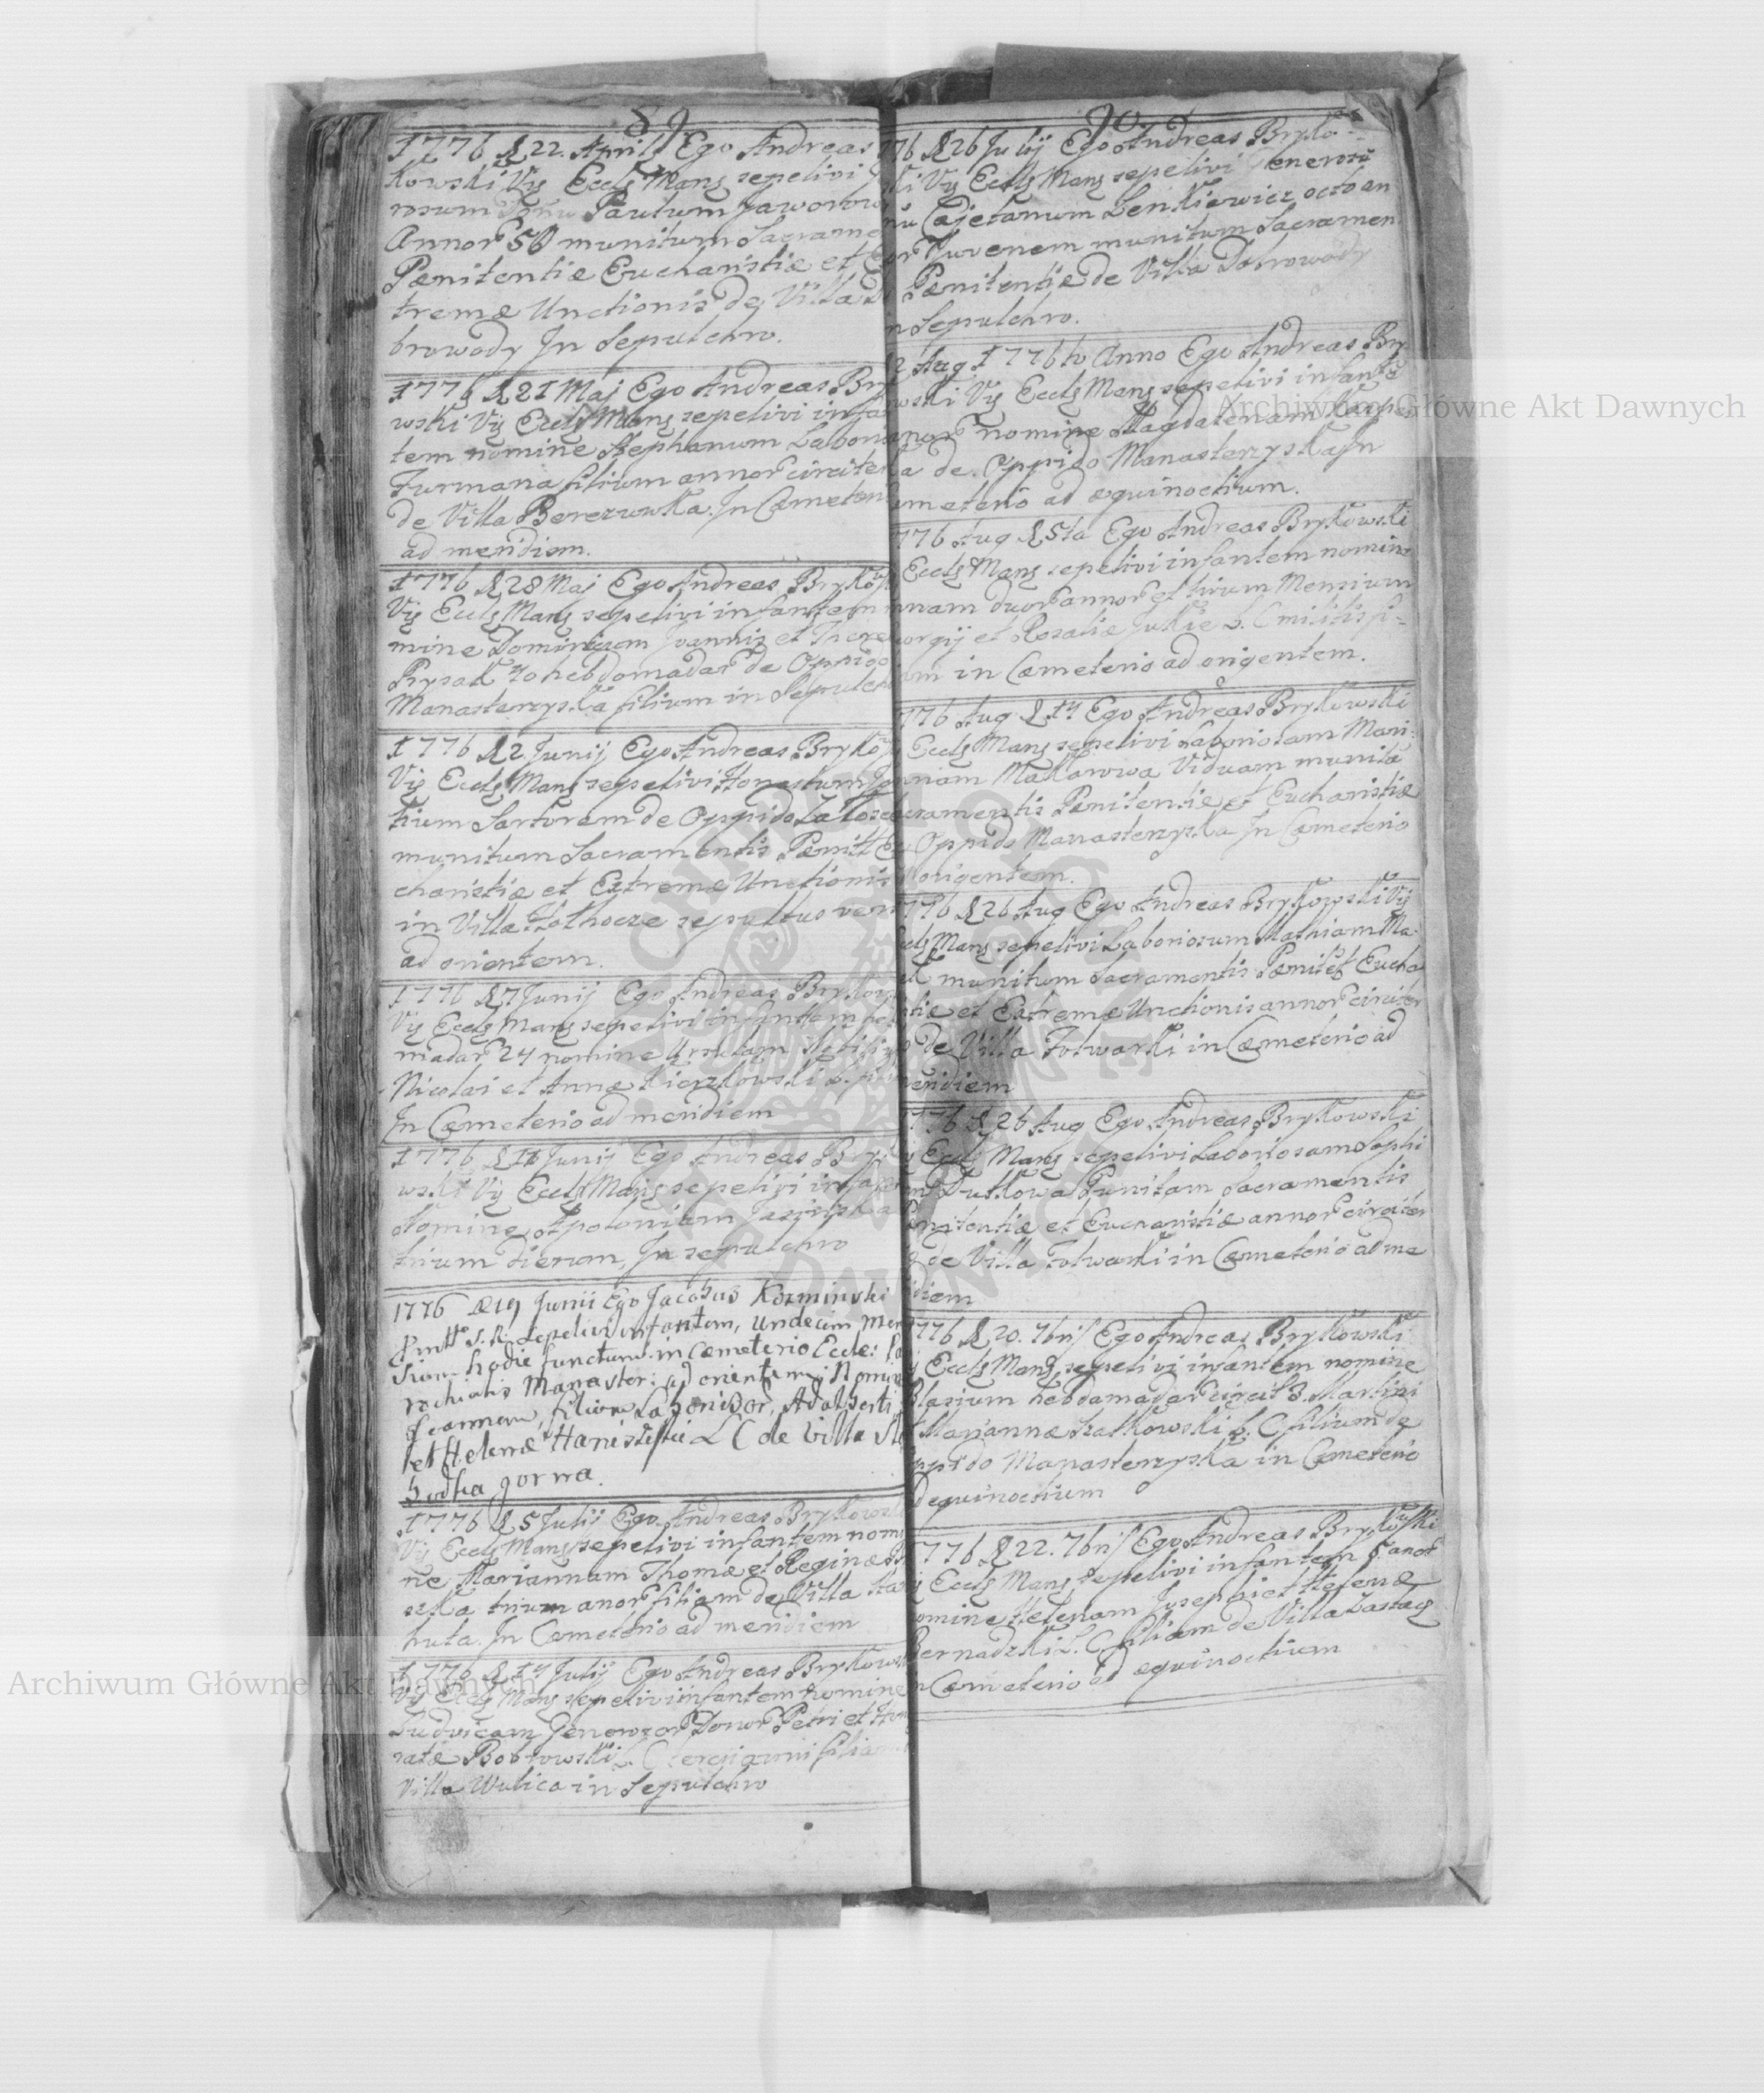 89
1776 d 22. Aprilis Ego Andreas
kowski Vis Eccls Mans sepelivi
rosum Dnum Paulum Jaworow
Annor 50 munitum Sacrame
Pænitentiæ Eucharistiæ et E
tremæ Unctionis de Villa D
browody In Sepulchro.
1776 d 21 Maj Ego Andreas Bry
wski Vis Eccls Mans sepelivi infan
tem nomine Stephanum Labor
Furmana filium annor circiter
de Villa Berezuwka. In Cæmeteri
ad meridiem.
1776 d 28 Maj Ego Andreas Brykow
Vis Eccls Mans sepelivi infantem
mine Dominicum Joannis et There
Prysak 10 hebdomadar de Oppido
Manasterzyska filium in Sepulch
1776 d 2 Junij Ego Andreas Bryko
Vis Eccls Mans sepelivi Honestum
tium Sartorem de Oppido
munitum Sacramentis Pænitt Eu
charistiæ et Extremæ Unctionis
in Villa Hothocze sepultus
ad orientem.
1776 d 7 Junij Ego Andreas Brykow
Vis Eccls Mans sepelivi infantem
madar 24 nomine Ursulam
Nicolai et Annæ Kierzkowski
In Cæmeterio ad meridiem
1776 d Junij Ego Andreas Bry
wski Vis Eccls Mans sepelivi
Nomine Apoloniam
trium dierum, In sepulchro
1776 d 19 Junii Ego Jacobus Kozminski
S. R. Sepelivi infantem, undecim Men
sium hodie functum in Cæmeterio Eccle: Pa
rochialis Manaster: ad orientem, Nomine
Joannem, filium Laborisor, Adalberti
et Helenæ L C de Villa Slo
bodka gorna.
1776 d 5 Julij Ego Andreas Brykowsk
Vis Eccls Mans sepelivi infantem nomi
ne Mariannam Thomæ et Reginæ
trium anor filiam de Villa
huta. In Cæmeterio ad meridiem
1776 d 14 Julij Ego Andreas Brykows
Vis Eccls Mans sepelivi infantem nomine
Ludvicam Generor Donor Petri et Hon
ratæ Bobrowski L. C filiam
Villa Wulica in Sepulchro
90
776 d 26 Julij Ego Andreas Bryko-
ski Vis Eccls Mans sepelivi Generosu
nu Cajetanum Lenkiewicz octo an
or Juvenem munitum Sacramen
Pænitentiæ de Villa Dobrowody
n Sepulchro.
2 Aug 1776to Anno Ego Andreas Bry
wski Vis Eccls Mans sepelivi infante
anor nomine Magdalenam
a de Oppido Manasterzyska In
emeterio ad æquinoctium.
776 Aug d 5ta Ego Andreas Brykowski
Eccls Mans sepelivi infantem nomine
nnam duor annor et trium Mensium
orgij et Rosaliæ L. C militis fi=
am in Cæmeterio ad origentem.
776 Aug d 14 Ego Andreas Brykowski
Eccls Mans sepelivi Laboriosam Mari-
nnam Makowa Viduam munita
cramentis Pænitentiæ et Eucharistiæ
Oppido Manasterzyska In Cæmeterio
origentem.
776 d 26 Aug Ego Andreas Brykowski Vis
ccls Mans sepelivi Laboriosum Mathiam Ma-
munitum Sacramentis Pænitet Eucha
stiæ et Extremæ Unctionis annor circiter
de Villa Folwarki in Cæmeterio ad
meridiem
1776 d 26 Aug Ego Andreas Brykowski
Eccls Mans sepelivi Laboriosam Sophi
m Dutkowa Punitam Sacramentis
ænitentiæ et Eucharistiæ annor circiter
de Villa Folwarki in Cæmeterio ad me
idiem
776 d 20. 7bris Ego Andreas Brykowski
Eccls Mans sepelivi infantem nomine
Blasium hebdomadar circit 3. Martini
Mariannæ Szatkowski L. C filium de
ppido Manasterzyska in Cæmeterio
d equinoctium
776 d 22. 7bris Ego Andreas Brykowski
Eccls Mans sepelivi infantem 5 anor
omine Helenam Josephi et Helenæ
Bernadzki L. C filiam de Villa
n Cæmeterio ad æquinoctium
Archiwum Główne Akt Dawnych
Archiwum Główne Akt Dawnych